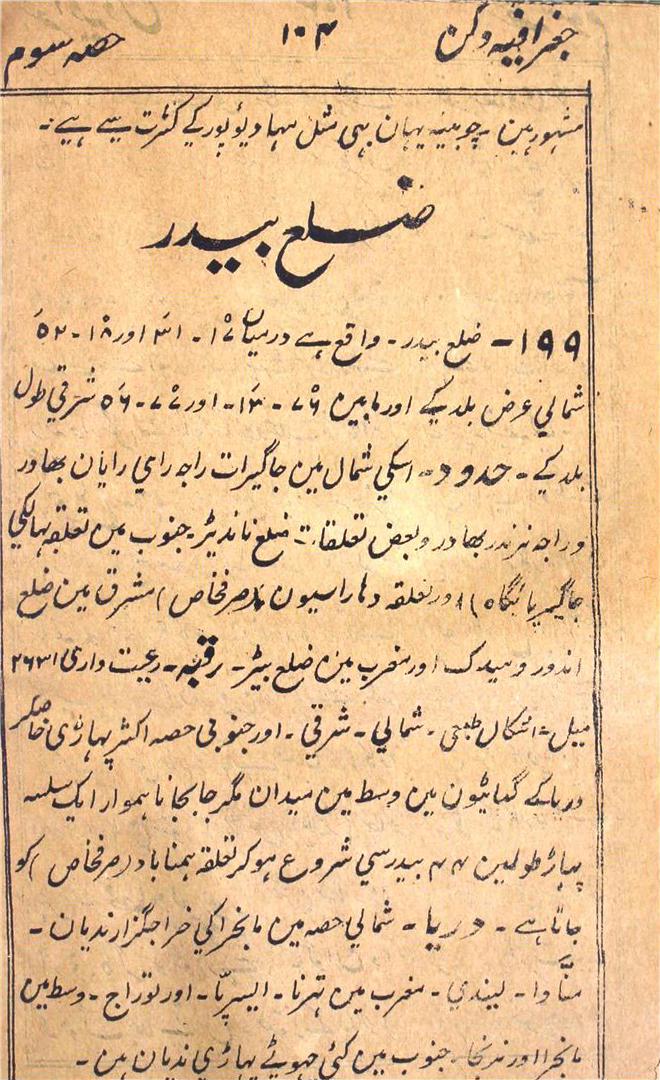 جغرافیہ دکن ۱۰۴ حصہ سوم
مشہور ہین - چوبینہ یہان بہی مثل مہادیوپور کے کثرت سے ہے -
ضلع بیدر
۱۹۹ - ضلع بیدر - واقع ہے درمیان ۱۷ - ۳۱ اور ۱۸ - ۵۲
شمالي عرض بلد کے اور مابین ۷۶ - ۱۳ - اور ۷۷ - ۵۶ شرقي طول
بلد کے - حدود - اسکي شمال مین جاگیرات راجہ راي رایان بھادر
و راجہ نرندر بھادر و بعض تعلقات ضلع ناندیڑ - جنوب مین تعلقہ بہالکي
جاگیر پائگاہ) اور تعلقہ دہاراسیون (صرفخاص) مشرق مین ضلع
اندور و میدک اور مغرب مین ضلع بیڑ - رقبہ - رعیت واری ۲۶۳۱
میل - اشکال طبعی - شمالي - شرقي - اور جنوبی حصہ اکثر پہاڑی خاصکر
دریا کے گہاٹیون مین وسط مین میدان مگر جابجا ناہموار ایک سلسہ
پہاڑ طولمین ۴۴ بیدرسي شروع ہوکر تعلقہ ہمناباد (صرفخاص) کو
جاتا ہے - دریا - شمالي حصہ مین مانجرا کي خراجگزار ندیان -
منّاوا - لیندي - مغرب مین تہرنا - اور توراج - وسط مین
مانجرا اور جنوب مین کئی چہوٹے پہاڑی ندیان ہین -